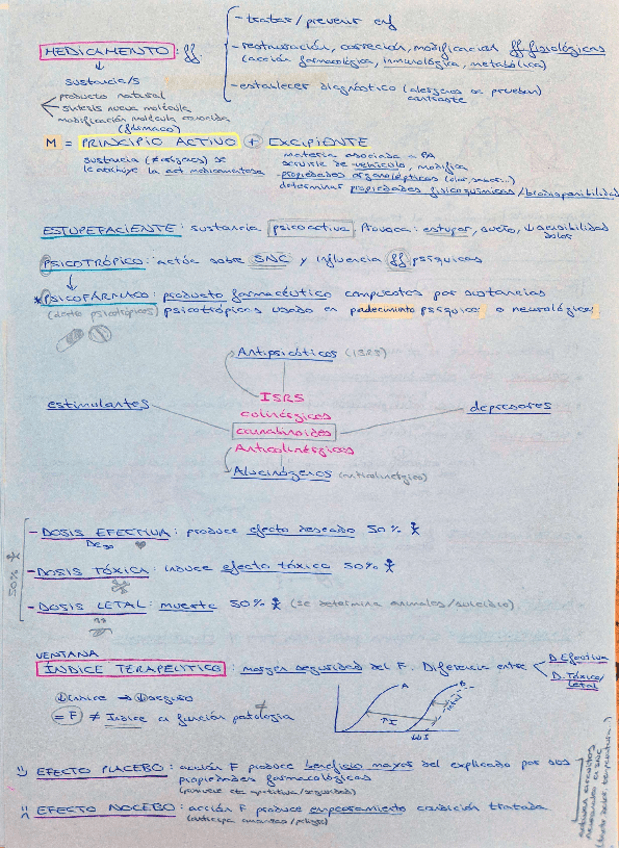 - tratar/prevenir enf
MEDICAMENTO: ff.
- restauración, correción, modificación ff fisiológicas
(acción farmacológica, inmunológica, metabólica)
sustancia/s
- establecer diagnóstico (alérgenos en prueban)
contraste
producto natural
síntesis nueva molécula
modificación molécula conocida
(fármaco)
M = PRINCIPIO ACTIVO + EXCIPIENTE
sustancia se
le atribuye la act medicamentosa
materia asociada a PA
servirle de vehículo, modifica
- propiedades organolépticas (olor, sabor...)
determinar propiedades fisicoquímicas/biodisponibilidad
ESTUPEFACIENTE: sustancia psicoactiva Provoca: estupor, sueño, ↓ sensibilidad
dolor
PSICOTRÓPICO: actúa sobre SNC y influencia ff psíquicas
* PSICOFÁRMACO: producto farmacéutico compuestos por sustancias
psicotrópicos) psicotrópicas usado en padecimiento psíquicos o neurológicos
Antipsicóticos (ISRS)
estimulantes
ISRS
depresores
colinérgicos
cannabinoides
Anticolinérgicos
Alucinógenos (anticolinérgico)
- DOSIS EFECTIVA: produce efecto deseado 50%
DE50
- DOSIS TÓXICA: induce efecto tóxico 50%
50%
- DOSIS LETAL: muerte 50% (se determina animales/suicidio)
VENTANA
ÍNDICE TERAPEÚTICO: margen seguridad del F. Diferencia entre
D. Efectiva
D. Tóxica/
Letal
↓ índice → ↓ seguro
= F ≠ Índice en función patología
A
B
EFECTO PLACEBO: acción F produce beneficio mayor del explicado por sus
propiedades farmacológicas
EFECTO NOCEBO: acción F produce empeoramiento condición tratada
(anticipa amenaza/peligro)